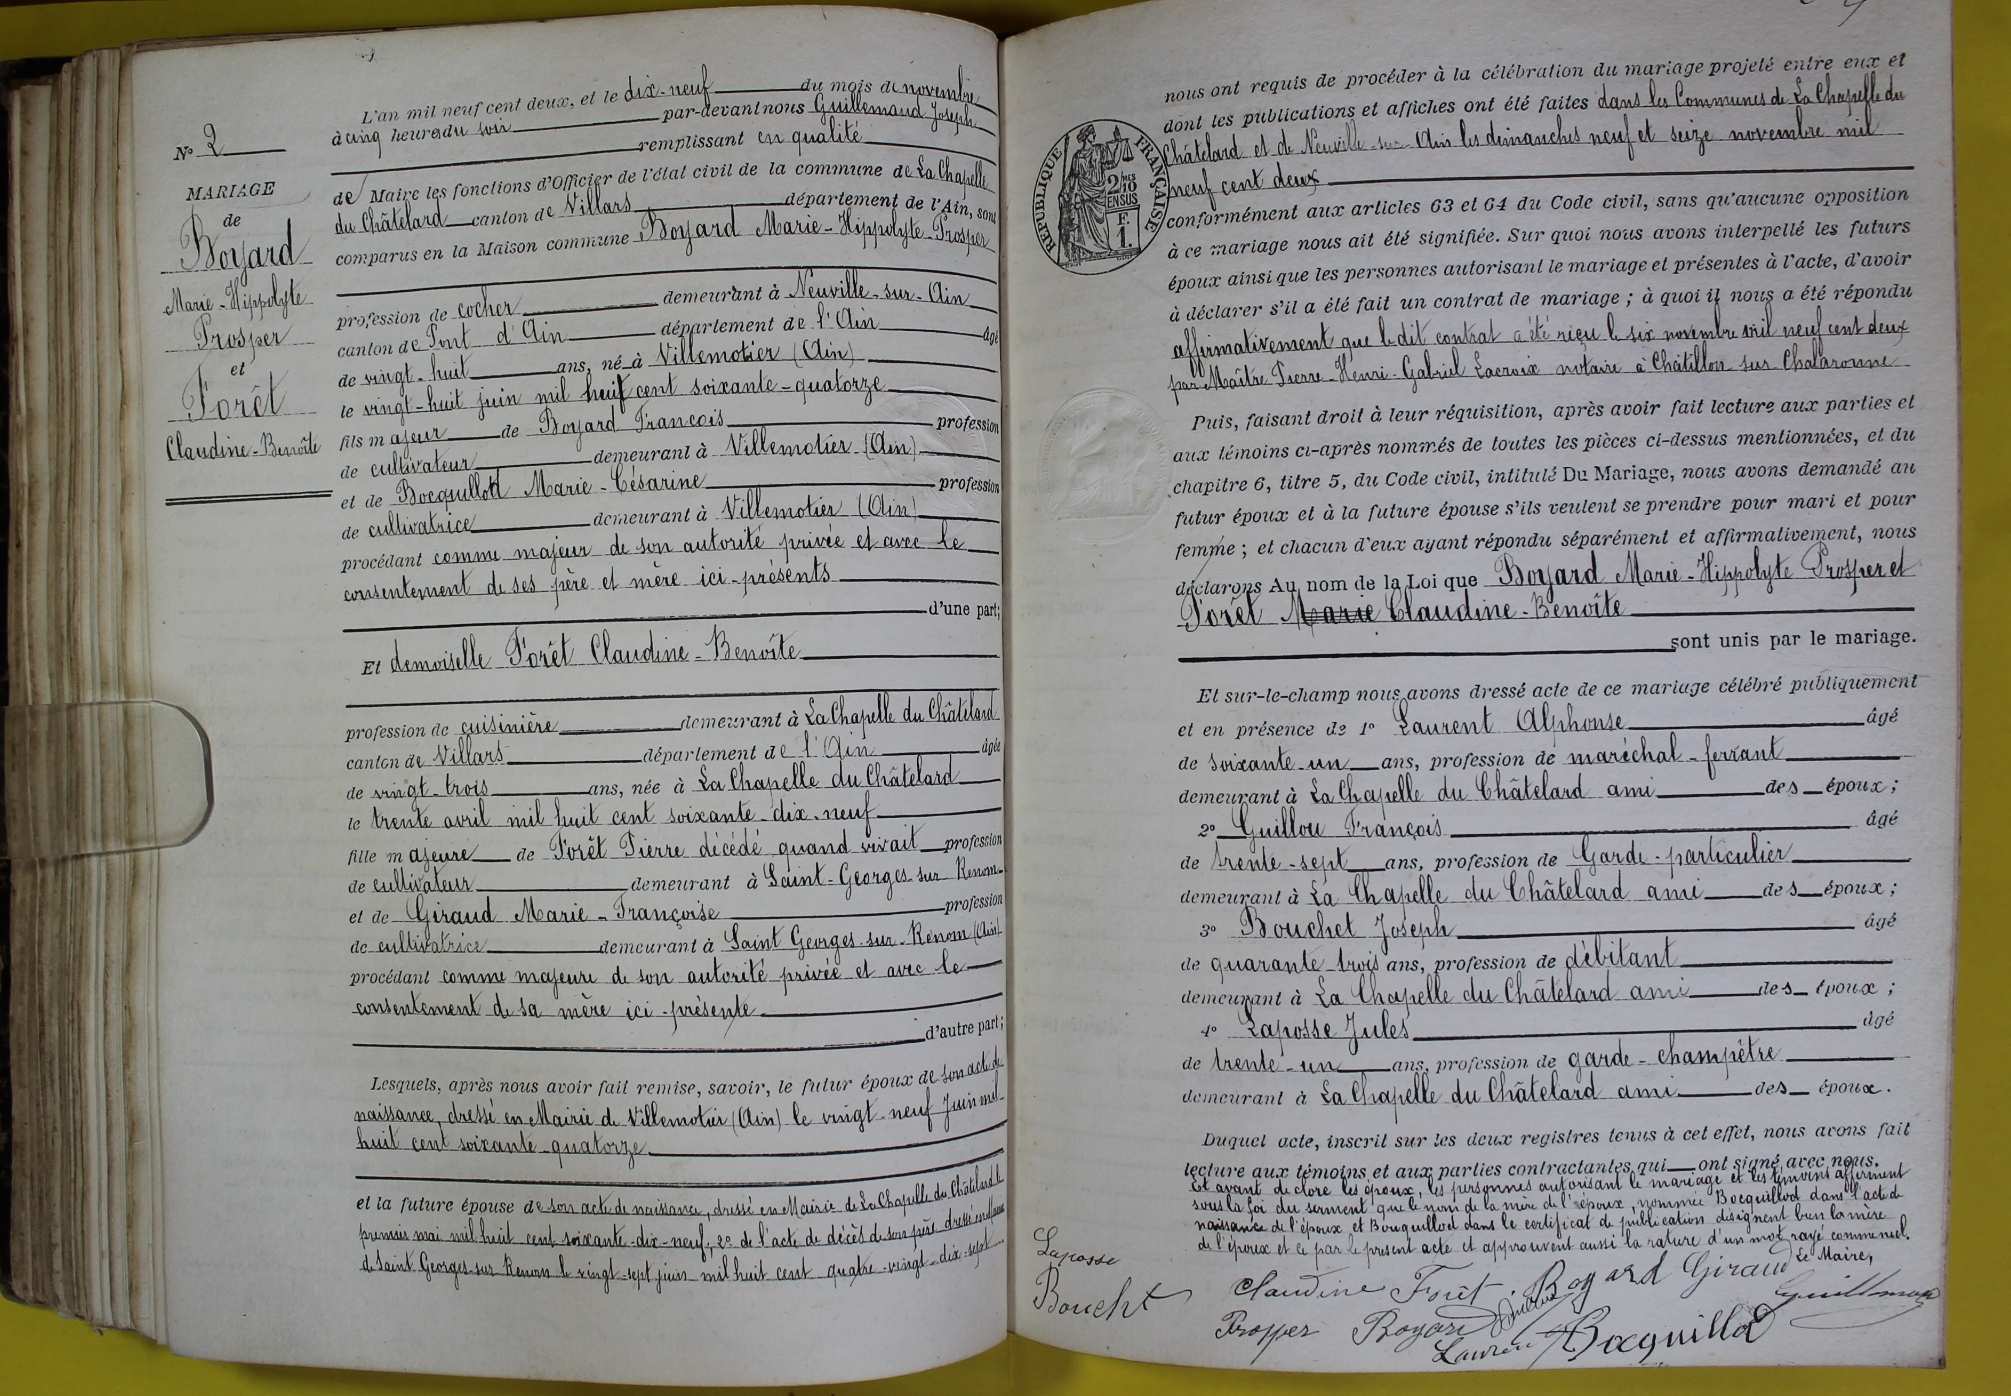 N° 2
MARIAGE
de
Boyard
Marie-Hippolyte
Prosper
et
Forêt
Claudine-Benoîte
L'an mil neuf cent deux, et le dix-neuf du mois de novembre
à cinq heures du soir par-devant nous Guillemaud Joseph
remplissant en qualité
de Maire les fonctions d'Officier de l'état civil de la commune de La Chapelle
du Châtelard canton de Villars département de l'Ain, sont
comparus en la Maison commune Boyard Marie-Hippolyte-Prosper
profession de cocher demeurant à Neuville-sur-Ain
canton de Pont d'Ain département de l'Ain âgé
de vingt-huit ans, né à Villemotier (Ain)
le vingt-huit juin mil huit cent soixante-quatorze
fils majeur de Boyard François profession
de cultivateur demeurant à Villemotier (Ain)
et de Bocquillod Marie-Césarine profession
de cultivatrice demeurant à Villemotier (Ain)
procédant comme majeur de son autorité privée et avec le
consentement de ses père et mère ici-présents
d'une part;
Et demoiselle Forêt Claudine-Benoîte
profession de cuisinière demeurant à La Chapelle du Châtelard
canton de Villars département de l'Ain âgée
de vingt-trois ans, née à La Chapelle du Châtelard
le trente avril mil huit cent soixante-dix-neuf
fille majeure de Forêt Pierre décédé quand vivait profession
de cultivateur demeurant à Saint-Georges-sur-Renom
et de Giraud Marie-Françoise profession
de cultivatrice demeurant à Saint Georges-sur-Renom (Ain)
procédant comme majeure de son autorité privée et avec le
consentement de sa mère ici-présente
d'autre part;
Lesquels, après nous avoir fait remise, savoir, le futur époux de son acte de
naissance, dressé en Mairie de Villemotier (Ain) le vingt-neuf Juin mil
huit cent soixante-quatorze
et la future épouse de son acte de naissance, dressé en Mairie de La Chapelle du Châtelard le
premier mai mil huit cent soixante-dix-neuf; 2° de l'acte de décès de son père dressé en Mairie
de Saint Georges-sur Renom le vingt-sept juin mil huit cent quatre-vingt-dix-sept
nous ont requis de procéder à la célébration du mariage projeté entre eux et
dont les publications et affiches ont été faites dans les Communes de La Chapelle du
Châtelard et de Neuville-sur-Ain les dimanches neuf et seize novembre mil
neuf cent deux
RÉPUBLIQUE FRANÇAISE
2/10 EN SUS
1 F.
conformément aux articles 63 et 64 du Code civil, sans qu'aucune opposition
à ce mariage nous ait été signifiée. Sur quoi nous avons interpellé les futurs
époux ainsi que les personnes autorisant le mariage et présentes à l'acte, d'avoir
à déclarer s'il a été fait un contrat de mariage; à quoi il nous a été répondu
affirmativement que le dit contrat a été reçu le six novembre mil neuf cent deux
par Maître Pierre-Henri-Gabriel Lacroix notaire à Châtillon sur Chalaronne
Puis, faisant droit à leur réquisition, après avoir fait lecture aux parties et
aux témoins ci-après nommés de toutes les pièces ci-dessus mentionnées, et du
chapitre 6, titre 5, du Code civil, intitulé Du Mariage, nous avons demandé au
futur époux et à la future épouse s'ils veulent se prendre pour mari et pour
femme; et chacun d'eux ayant répondu séparément et affirmativement, nous
déclarons Au nom de la Loi que Boyard Marie-Hippolyte Prosper et
Forêt Marie Claudine-Benoîte
sont unis par le mariage.
Et sur-le-champ nous avons dressé acte de ce mariage célébré publiquement
et en présence de 1° Laurent Alphonse âgé
de soixante-un ans, profession de maréchal-ferrant
demeurant à La Chapelle du Châtelard ami des époux;
2° Guillou François âgé
de trente-sept ans, profession de Garde-particulier
demeurant à La Chapelle du Châtelard ami des époux;
3° Bouchet Joseph âgé
de quarante-trois ans, profession de débitant
demeurant à La Chapelle du Châtelard ami des époux;
4° Laposse Jules âgé
de trente-un ans, profession de garde-champêtre
demeurant à La Chapelle du Châtelard ami des époux.
Duquel acte, inscrit sur les deux registres tenus à cet effet, nous avons fait
lecture aux témoins et aux parties contractantes qui ont signé avec nous.
Et avant de clore les époux, les personnes autorisant le mariage et les témoins affirment
sous la foi du serment que le nom de la mère de l'époux, nommée Bocquillod dans l'acte de
naissance de l'époux et Bouquillod dans le certificat de publication désignent bien la mère
de l'époux et ce par le présent acte et approuvent aussi la rature d'un mot rayé comme nul.
Le Maire,
Laposse
Bouchet
Claudine Forêt Boyard Giraud Guillemaud
Prosper Boyard Guillou
Laurent Bocquillod